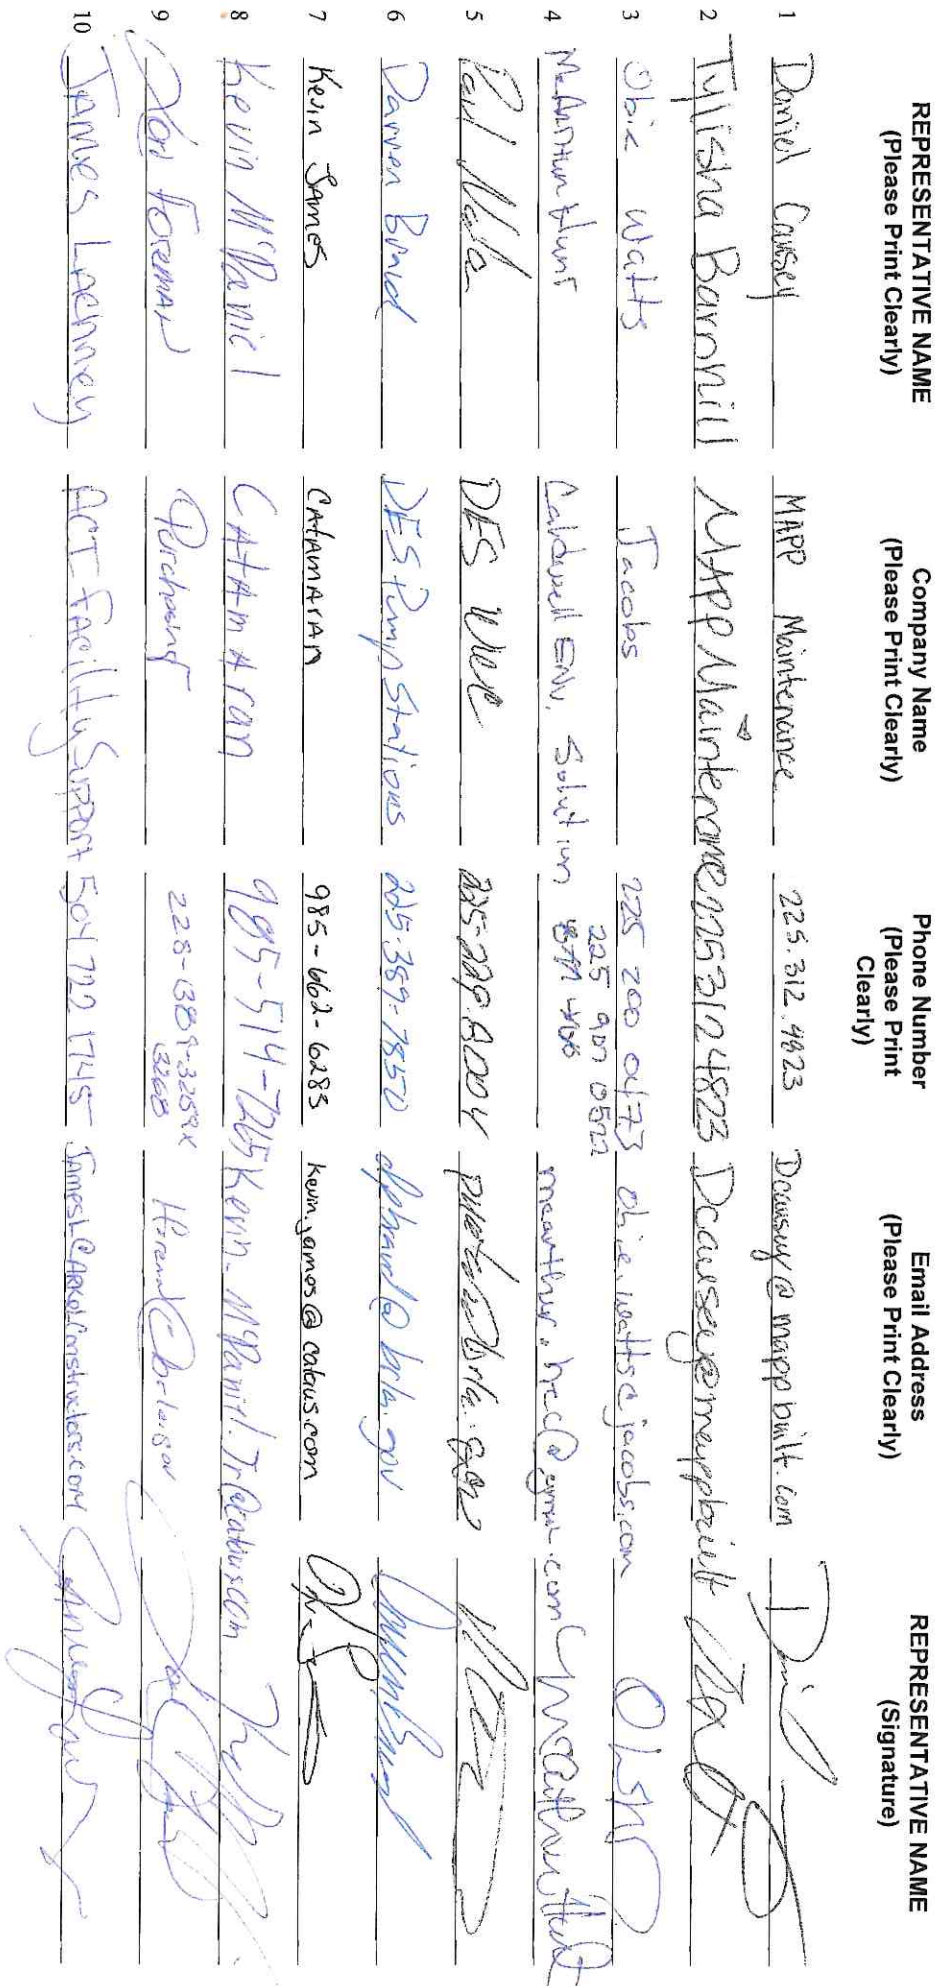 REPRESENTATIVE NAME (Please Print Clearly) Company Name (Please Print Clearly) Phone Number (Please Print Clearly) Email Address (Please Print Clearly) REPRESENTATIVE NAME (Signature)
1 Daniel Causey MAPP Maintenance 225.312.4823 Dcausey@mappbuilt.com
2 Tyllisha Baronhill MAPP Maintenance 2253124823 Dcausey@mappbuilt
3 Obie Watts Jacobs 225 200 0473 obie.watts@jacobs.com
4 McArthur Hunt Caldwell Env. Solution 225 907 0522
5 DES 225-229-8004
6 Darren Braud DES Pump Stations 225-389-7850 dpbraud@brla.gov
7 Kevin James CATAMARAN 985-662-6283 Kevin.james@cataus.com
8 Kevin McDaniel CATAMAran 985-514-7265 Kevin.McDaniel.Jr@cataus.com
9 Foreman Purchasing 3268
10 James Lachney ACI Facility Support 504 722 1745 JamesL@ARKelConstructors.com